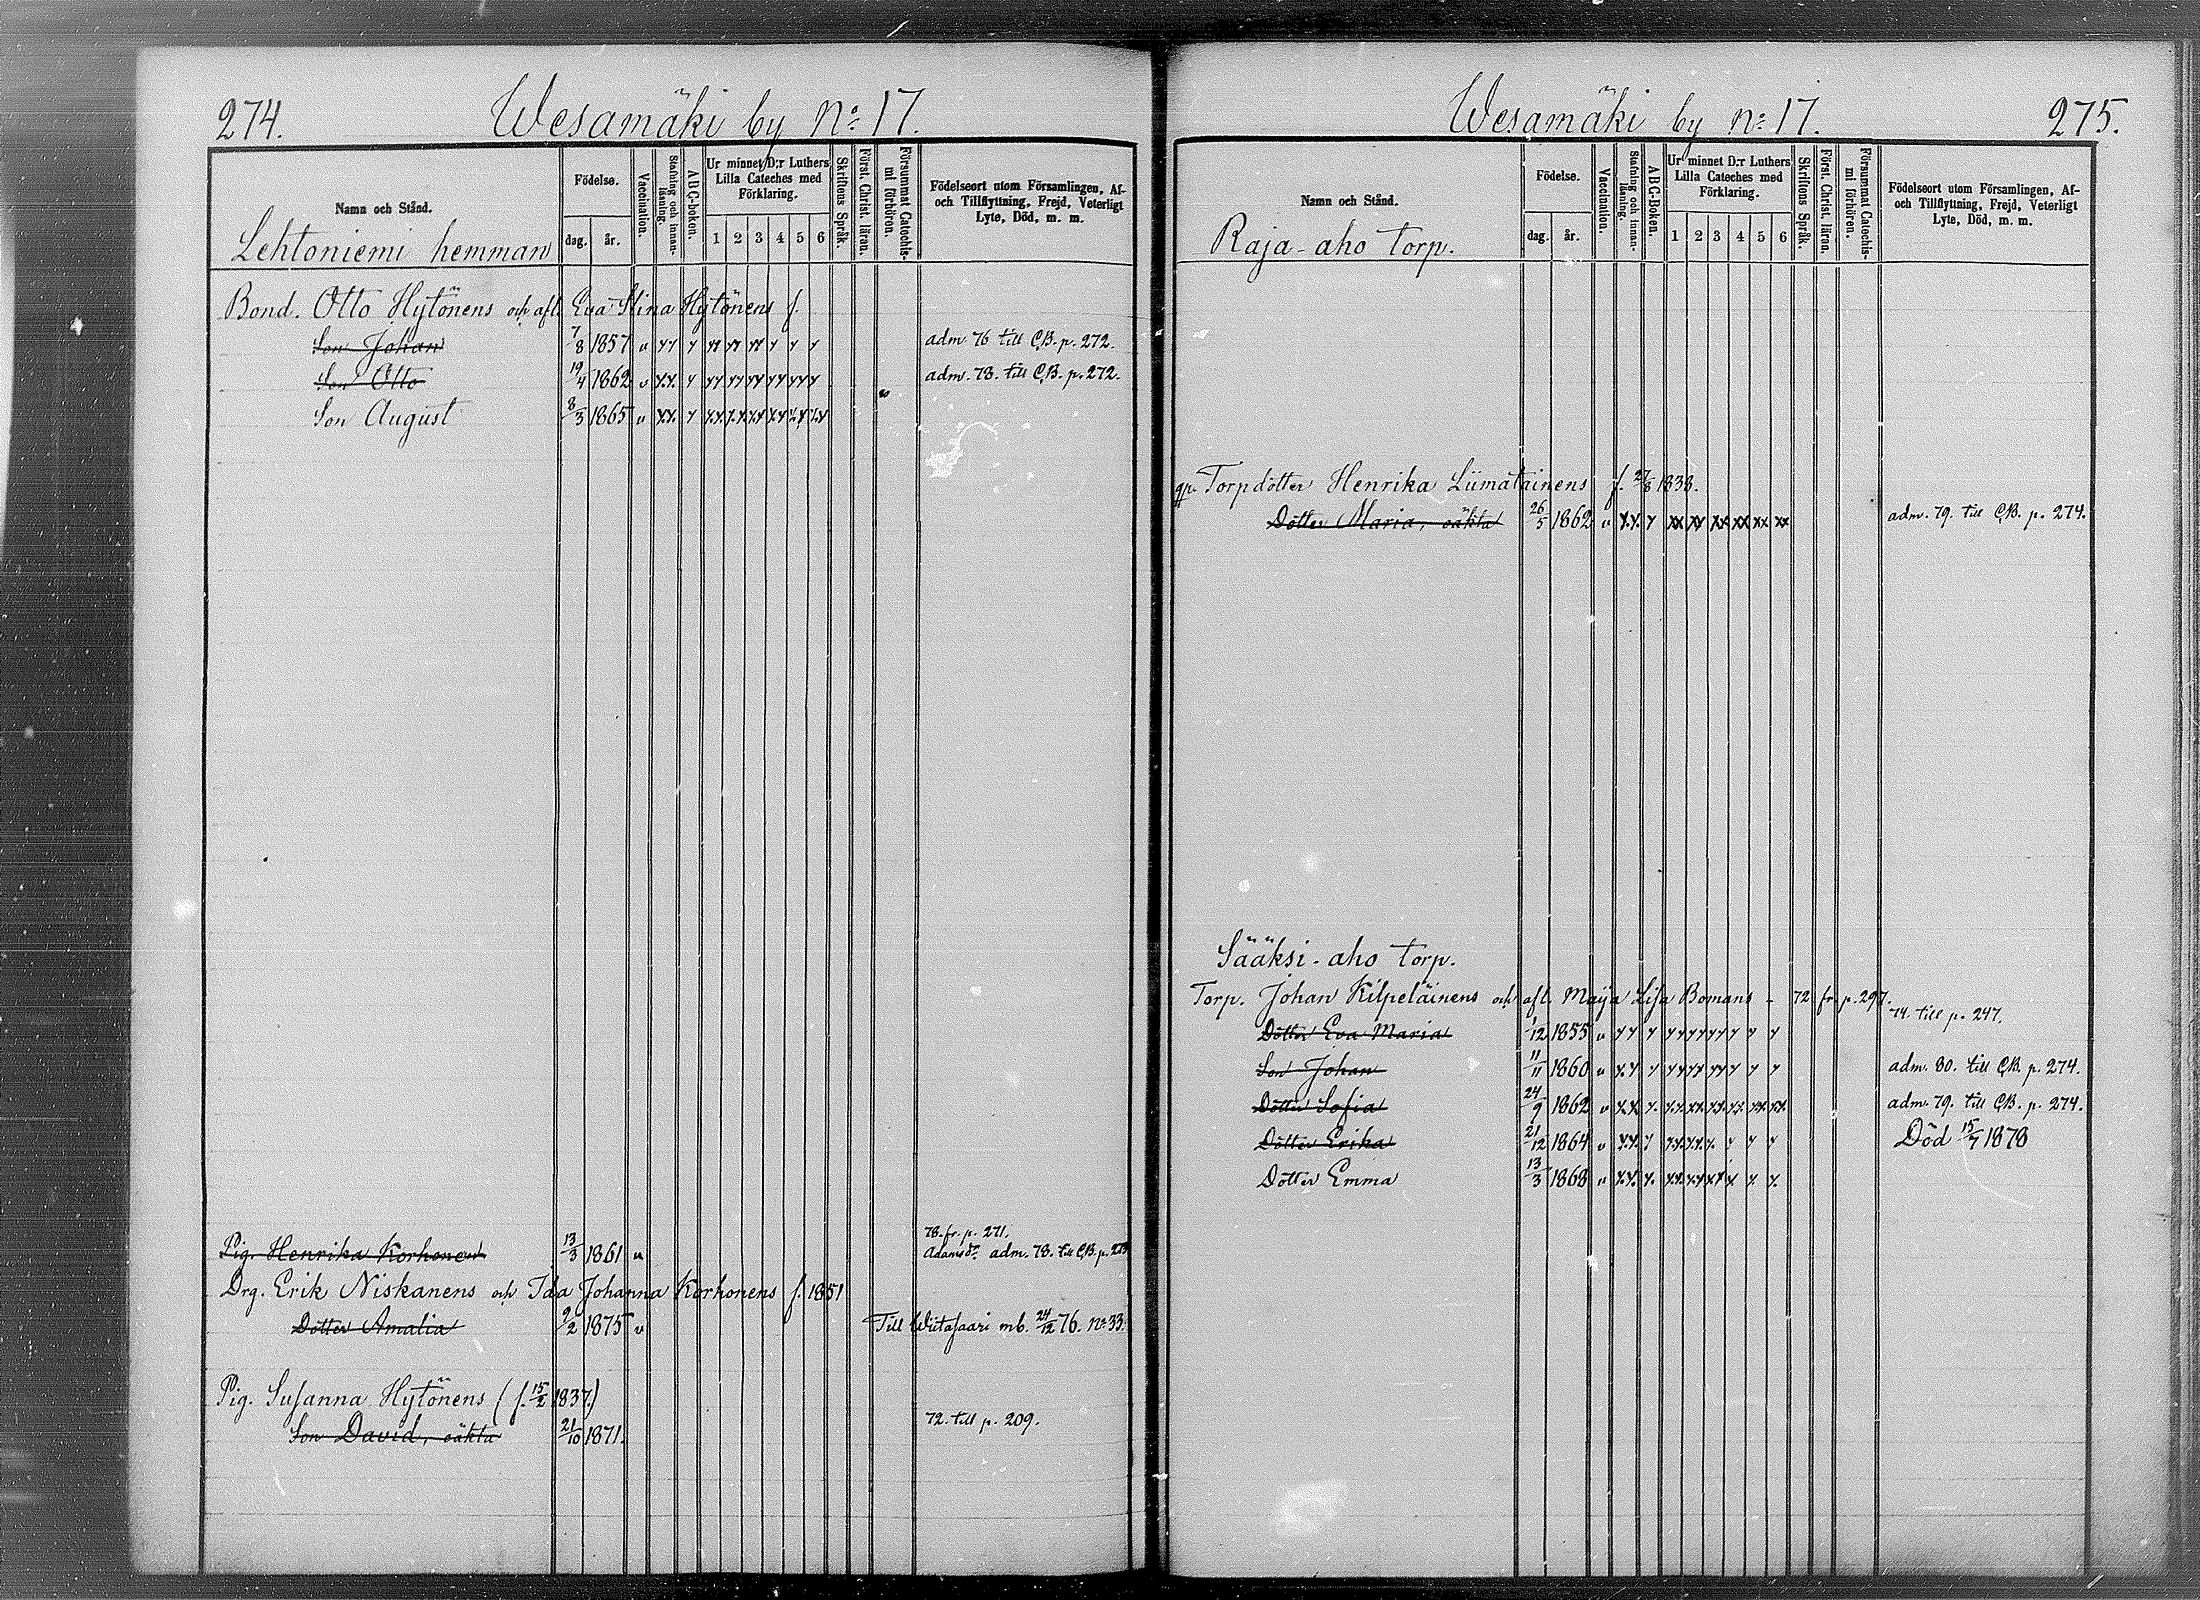 274.
Wesamäki by No 17.
Namn och Stånd.
Födelse.
dag. år.
Vaccination.
Stafning och innanläsning.
ABC-boken.
Ur minnet D:r Luthers Lilla Cateches med Förklaring.
1 2 3 4 5 6
Skriftens Språk.
Först. Christ. läran.
Försummat Catechismi förhören.
Födelseort utom Församlingen, Af-
och Tillflyttning, Frejd, Veterligt
Lyte, Död, m. m.
Lehtoniemi hemman
Bond. Otto Hytönens och afl. Eva Stina Hytönens f.
Son Johan 7/8 1857 v adm. 76 till C.B. p. 272.
Son Otto 19/4 1862 v adm. 78. till C.B. p. 272.
Son August 8/3 1865 v
78. fr. p. 271.
Pig. Henrika Korhonen 13/3 1861 v Adamsdr adm. 78. till C.B. p.
Drg. Erik Niskanens och Ida Johanna Korhonens f. 1851
Dotter Amalia 9/2 1875 v Till Wiitasaari mb. 24/12 76. No 33.
Pig. Susanna Hytönens (f. 15/2 1837.)
Son David, oäkta 21/10 1871. 72. till p. 209.
Wesamäki by No 17.
275.
Namn och Stånd.
Födelse.
dag. år.
Vaccination.
Stafning och innanläsning.
ABC-Boken.
Ur minnet D:r Luthers
Lilla Cateches med
Förklaring.
1 2 3 4 5 6
Skriftens Språk.
Först. Christ. läran.
Försummat Catechismi förhören.
Födelseort utom Församlingen, Af-
och Tillflyttning, Frejd, Veterligt
Lyte, Död, m. m.
Raja-aho torp.
Torpdotter Henrika Liimatainens f. 27/8 1838.
Dotter Maria, oäkta 26/5 1862 v adm. 79. till C.B. p. 274.
Sääksi-aho torp.
Torp. Johan Kilpeläinens och afl. Maija Lisa Bomans - 72 fr. p. 297.
Dotter Eva Maria 1/12 1855 v 74. till p. 247.
Son Johan 11/11 1860 v adm. 80. till C.B. p. 274.
Dotter Sofia 24/9 1862 v adm. 79. till C.B. p. 274.
Dotter Erika 21/12 1864 v Död 15/7 1878
Dotter Emma 13/3 1868 v